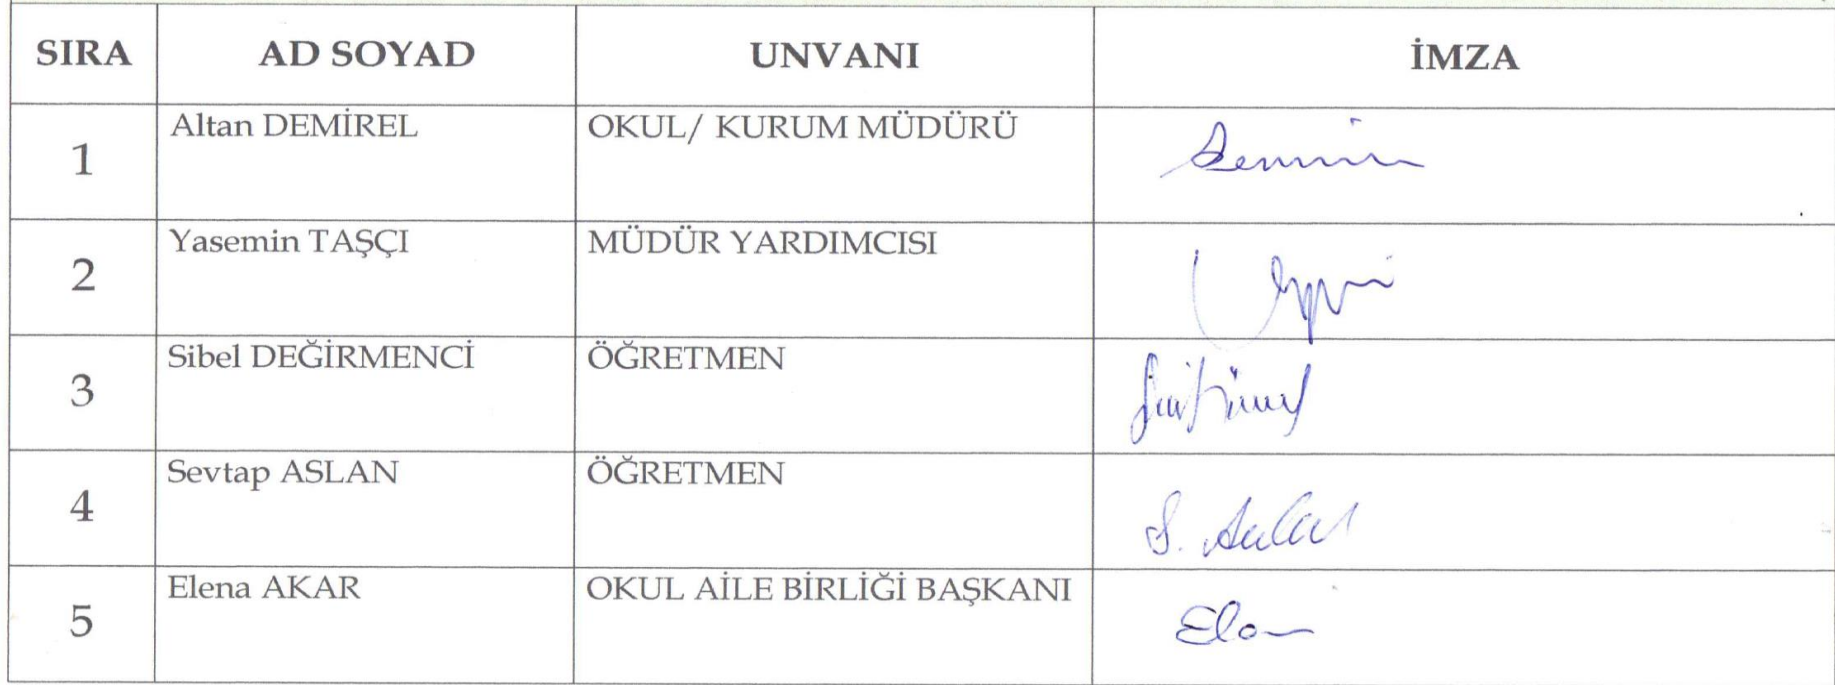 SIRA AD SOYAD UNVANI İMZA
1 Altan DEMİREL OKUL/ KURUM MÜDÜRÜ
2 Yasemin TAŞÇI MÜDÜR YARDIMCISI
3 Sibel DEĞİRMENCİ ÖĞRETMEN
4 Sevtap ASLAN ÖĞRETMEN
5 Elena AKAR OKUL AİLE BİRLİĞİ BAŞKANI